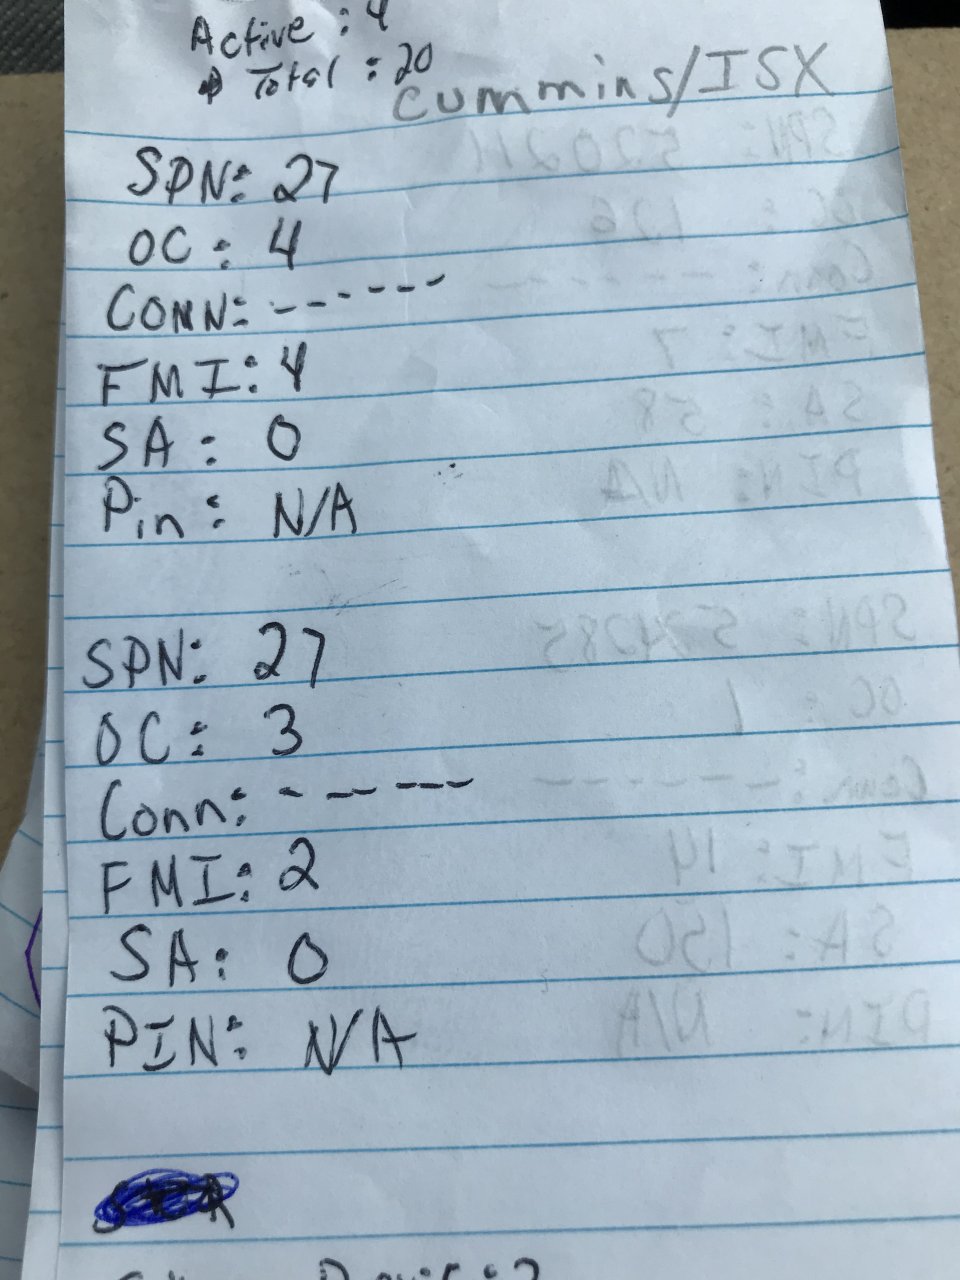 Active : 4
Total : 20
Cummins/ISX
SPN: 27
OC: 4
CONN: ------
FMI: 4
SA: 0
Pin: N/A
SPN: 27
OC: 3
Conn: ------
FMI: 2
SA: 0
PIN: N/A